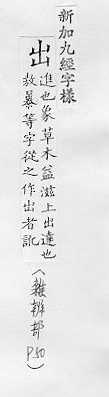 新加九經字樣
出
進也象草木益滋上出達也
敖暴等字從之作出者訛
(雜辨部 P.50)